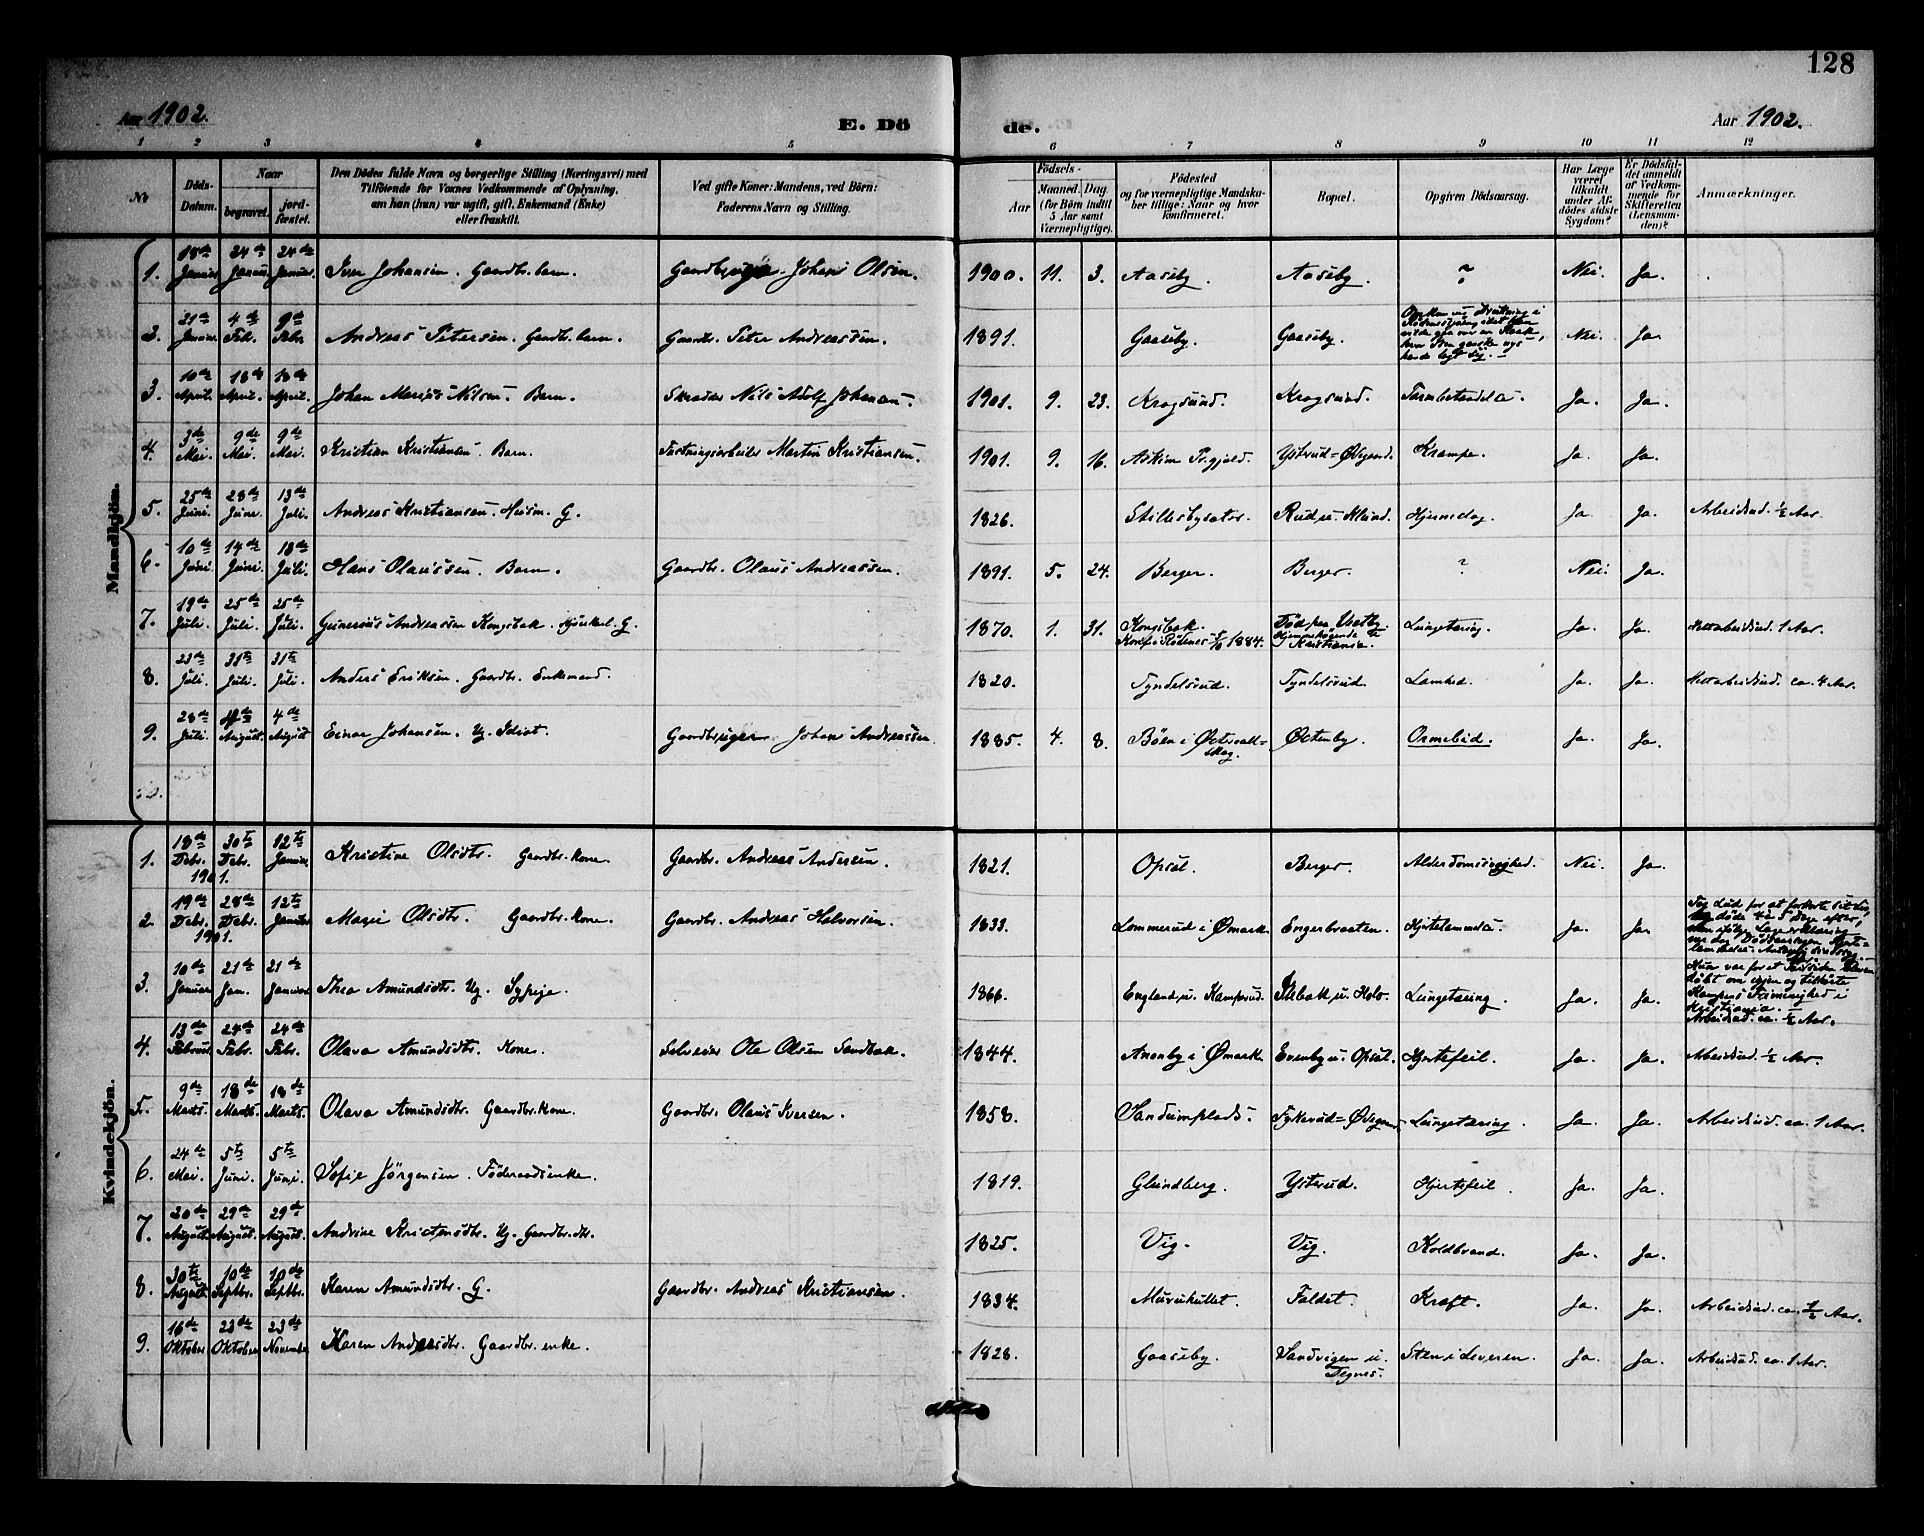 128
Aar 1902.
E. Dö
de.
Aar 1902.
1 2 3 4 5 6 7 8 9 10 11 12
№
Döds-
Datum.
Naar
begravet.
jord-
fæstet.
Den Dödes fulde Navn og borgerlige Stilling (Næringsvei) med
Tilföiende for Voxnes Vedkommende af Oplysning,
om han (hun) var ugift, gift, Enkemand (Enke)
eller fraskilt.
Ved gifte Koner: Mandens, ved Börn:
Faderens Navn og Stilling.
Födsels-
Aar
Maaned. Dag.
(for Börn indtil
5 Aar samt
Værnepligtige).
Födested
og for værnepligtige Mandska-
ber tillige: Naar og hvor
konfirmeret.
Bopæl.
Opgiven Dödsaarsag.
Har Læge
været
tilkaldt
under Af-
dödes sidste
Sygdom?
Er Dödsfal-
det anmeldt
af Vedkom-
mende for
Skifteretten
(Lensman-
den)?
Anmærkninger.
Mandkjön.
1. 18de Januar. 24de Januar. 24de Januar. Iver Johansen. Gaardbr. barn. Gaardbruger Johan Olsen. 1900. 11. 3. Aaseby. Aaseby. ? Nei. Ja.
2. 21de Januar. 4de Feb. 9de Febr. Andreas Petersen. Gaardbr. barn. Gaardbr. Peter Andreassen. 1891. Gaaseby. Gaaseby. Nei. Ja.
3. 10de April. 18de April. 18de April. Johan Marius Nilsen. Barn. Skrædder Nils Adolf Johansen. 1901. 9. 23. Krogsund. Krogsund. Tarmbetændelse. Ja. Ja.
4. 3de Mai. 9de Mai. 9de Mai. Kristian Kristiansen. Barn. Fæstningsarbeider Martin Kristiansen. 1901. 9. 16. Askim Pr.gjeld. Ystrud=Ødegaard. Krampe. Ja. Ja.
5. 25de Juni. 28de Juni. 13de Juli. Andreas Kristiansen. Husm. G. 1826. Stillesbysater. Rud u. Klund. Hjerneslag. Ja. Ja. Arbeidsud. ½ Aar.
6. 10de Juni. 14de Juni. 18de Juli. Hans Olaussen. Barn. Gaardbr. Olaus Andreassen. 1891. 5. 24. Berger. Berger. ? Nei. Ja.
7. 19de Juli. 25de Juli. 25de Juli. Gunerius Andreassen Kongsbak. G. 1870. 1. 31. Kongsbak.
Konf. i Rödenes 1884. Kristiania. Lungetæring. Ja. Ja. Ikke arbeidsud. 1 Aar.
8. 23de Juli. 31te Juli. 31te Juli. Anders Eriksen. Gaardbr. Enkemand. 1820. Tyndelsrud. Tyndelsrud. Lamhed. Ja. Ja. Ikke arbeidsud. ca. 4 Aar.
9. 28de Juli. 4de August. 4de August. Einar Johansen. Ug. Idiot. Gaardbruger Johan Andreassen. 1885. 4. 8. Böen i Østervall=
skog. Østenby. Ormebid. Ja. Ja.
10.
Kvindekjön.
1. 18de Debr. 1901. 30te Debr. 12te Januar. Kristine Olsdtr. Gaardbr. Kone. Gaardbr. Andreas Andersen. 1821. Opsal. Berger. Alderdomssvaghed. Nei. Ja.
2. 19de Debr. 1901. 28de Debr. 12te Januar. Marie Olsdtr. Gaardbr. Kone. Gaardbr. Andreas Halvorsen. 1833. Lommerud i Ømark. Engerbraaten. Hjertelammelse. Ja. Ja.
3. 10de Januar. 21de Jan. 21de Januar. Thea Amundsdtr. Ug. Sypige. 1866. England u. Kamperud. Ilebak u. Holo. Lungetæring. Ja. Ja. Kampens Frimenighed i
Kristiania.
Arbeidsud. ca. ½ Aar.
4. 13de Februar. 24de Febr. 24de Febr. Olava Amundsdtr. Kone. Selveier Ole Olsen Sandbæk. 1844. Anonby i Ømark. Evenby u. Opsal. Hjertefeil. Ja. Ja. Arbeidsud. ½ Aar.
5. 9de Marts. 18de Marts. 18de Marts. Olava Amundsdtr. Gaardbr. Kone. Gaardbr. Olaus Iversen. 1858. Sandumplads. Fykerud=Ødegaard. Lungetæring. Ja. Ja. Arbeidsud. ca. 1 Aar.
6. 24de Mai. 5te Juni. 5te Juni. Sofie Jörgensen. Föderaadsenke. 1819. Glundberg. Ystrud. Hjertefeil. Ja. Ja.
7. 20de August. 29de August. 29de August. Andrine Kristensdtr. Ug. Gaardbr. dtr. 1825. Vig. Vig. Koldbrand. Ja. Ja.
8. 30te August. 10de Septbr. 10de Septbr. Karen Amundsdtr. G. Gaardbr. Andreas Kristiansen. 1834. Faldet. Kræft. Ja. Ja. Arbeidsud. ca. ½ Aar.
9. 16de Oktober. 23de Oktober. 23de November. Karen Andreasdtr. Gaardbr. enke. 1828. Gaaseby. Sandvigen u.
Tegnes. Sten i Leveren. Ja. Ja. Arbeidsud. ca. 1 Aar.